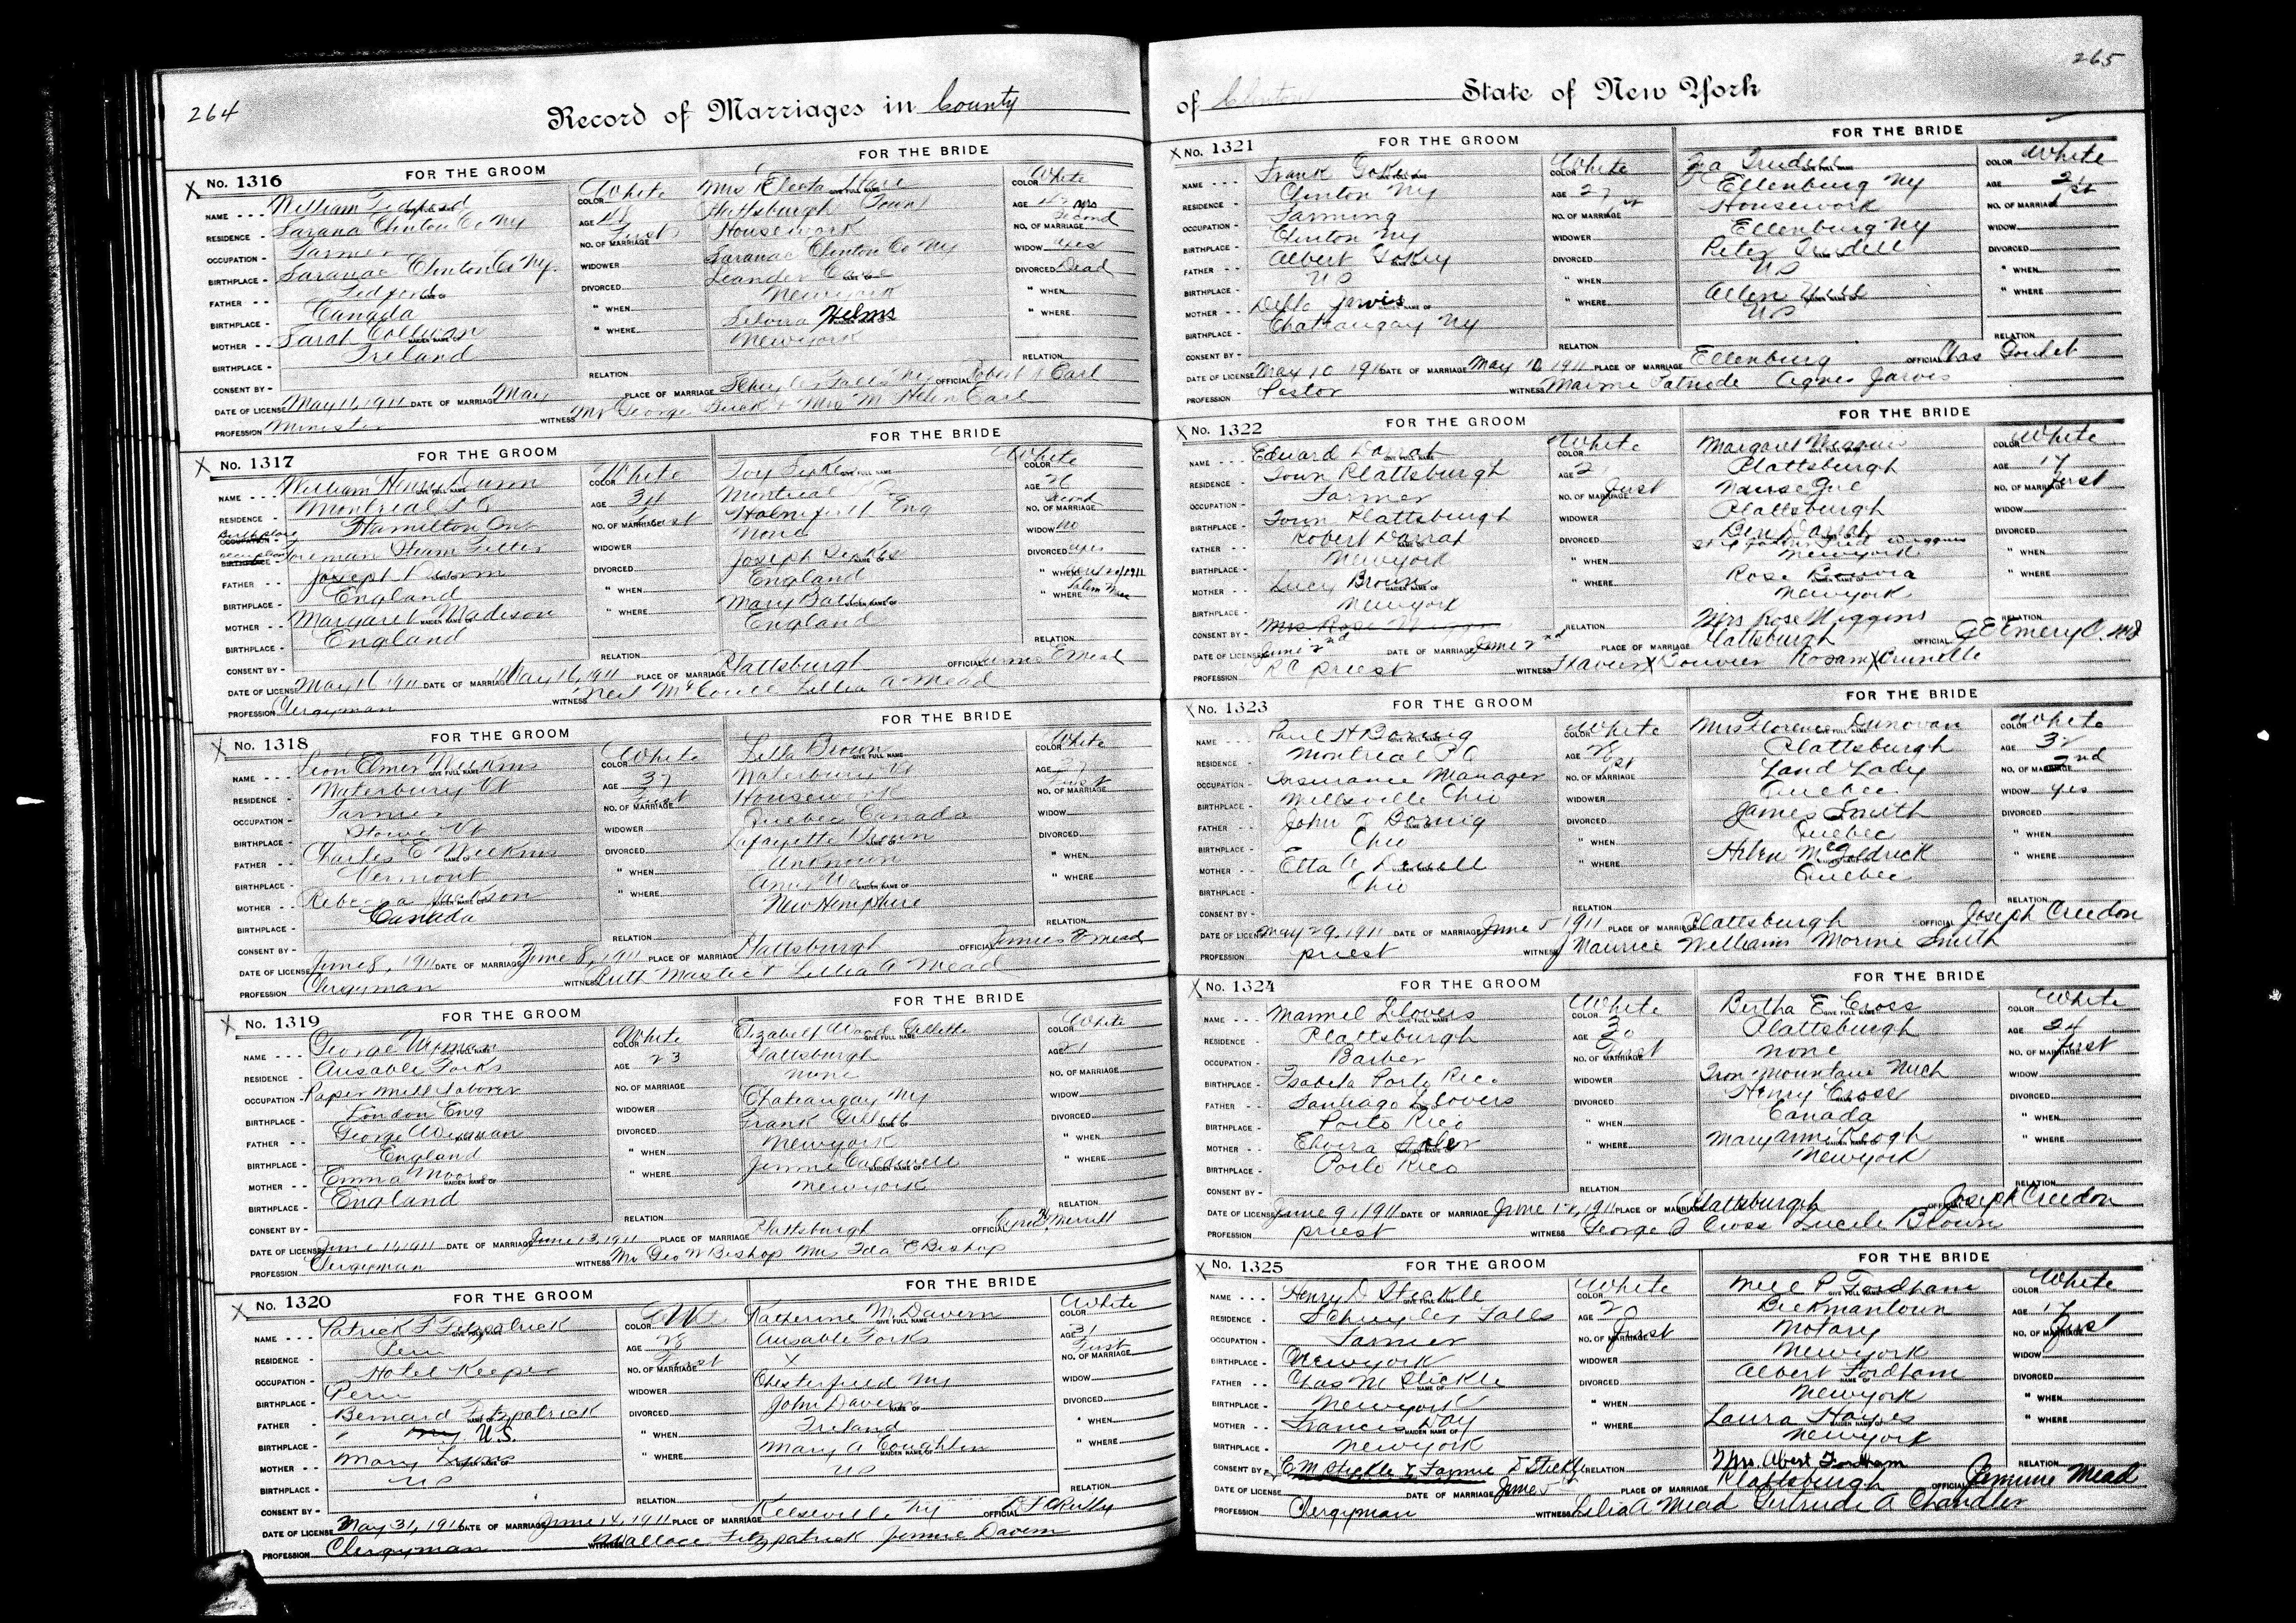 264
Record of Marriages in County
No. 1316 FOR THE GROOM FOR THE BRIDE
NAME William Tedford COLOR White Mrs Electa COLOR White
RESIDENCE Sarana Clinton Co Ny AGE 48 Plattsburgh Town AGE yrs
OCCUPATION Farmer NO. OF MARRIAGE First Housework NO. OF MARRIAGE Second
BIRTHPLACE Saranac Clinton Co Ny. WIDOWER Saranac Clinton Co Ny WIDOW yes
FATHER Tedford DIVORCED Leander DIVORCED Dead
BIRTHPLACE Canada " WHEN New york " WHEN
MOTHER Sarah " WHERE Helms " WHERE
BIRTHPLACE Ireland New york
CONSENT BY RELATION RELATION
DATE OF LICENSE May 11, 1911 DATE OF MARRIAGE May PLACE OF MARRIAGE Schuyler Falls Ny OFFICIAL Robert Earl
PROFESSION Minister WITNESS Mr George Buck + Mrs M Helen Earl
No. 1317 FOR THE GROOM FOR THE BRIDE
NAME William Henry Dunn COLOR White COLOR White
RESIDENCE Montreal P Q AGE 34 Montreal AGE 26
Birthplace Hamilton Ont NO. OF MARRIAGE First Eng NO. OF MARRIAGE Second
occupation Foreman Steam Fitter WIDOWER None WIDOW no
FATHER Joseph Dunn DIVORCED Joseph DIVORCED yes
BIRTHPLACE England " WHEN England " WHEN 1911
MOTHER Margaret Madison " WHERE Mary " WHERE Salem
BIRTHPLACE England England
CONSENT BY RELATION RELATION
DATE OF LICENSE May 16 1911 DATE OF MARRIAGE May 16, 1911 PLACE OF MARRIAGE Plattsburgh OFFICIAL James E Mead
PROFESSION Clergyman WITNESS Neil Lillia A Mead
No. 1318 FOR THE GROOM FOR THE BRIDE
NAME Leon Elmer COLOR White Lilla Brown COLOR White
RESIDENCE Waterbury Vt AGE 37 Waterbury Vt AGE 37
OCCUPATION Farmer NO. OF MARRIAGE First Housework NO. OF MARRIAGE First
BIRTHPLACE Stowe Vt WIDOWER Quebec Canada WIDOW
FATHER Charles E DIVORCED Lafayette Brown DIVORCED
BIRTHPLACE Vermont " WHEN Unknown " WHEN
MOTHER Rebecca Jackson " WHERE " WHERE
BIRTHPLACE Canada New Hempshire
CONSENT BY RELATION RELATION
DATE OF LICENSE June 8, 1911 DATE OF MARRIAGE June 8, 1911 PLACE OF MARRIAGE Plattsburgh OFFICIAL James E Mead
PROFESSION Clergyman WITNESS Ruth Lillia A Mead
No. 1319 FOR THE GROOM FOR THE BRIDE
NAME George Wyman COLOR White Elizabeth Wood Gillette COLOR White
RESIDENCE Ausable Forks AGE 23 Plattsburgh AGE 21
OCCUPATION Paper mill laborer NO. OF MARRIAGE None NO. OF MARRIAGE
BIRTHPLACE London Eng WIDOWER Chateaugay Ny WIDOW
FATHER George Wyman DIVORCED Frank Gilleth DIVORCED
BIRTHPLACE England " WHEN New york " WHEN
MOTHER Emma Moore " WHERE Jennie Caldwell " WHERE
BIRTHPLACE England New york
CONSENT BY RELATION RELATION
DATE OF LICENSE June 1911 DATE OF MARRIAGE June 13, 1911 PLACE OF MARRIAGE Plattsburgh OFFICIAL Merritt
PROFESSION Clergyman WITNESS Mr Geo W Bishop Mrs Ida E Bishop
No. 1320 FOR THE GROOM FOR THE BRIDE
NAME Patrick F Fitzpatrick COLOR Katherine M Davern COLOR White
RESIDENCE Peru AGE 28 Ausable Forks AGE 31
OCCUPATION Hotel Keeper NO. OF MARRIAGE First X NO. OF MARRIAGE First
BIRTHPLACE Peru WIDOWER Chesterfield Ny WIDOW
FATHER Bernard Fitzpatrick DIVORCED John Davern DIVORCED
BIRTHPLACE U.S. " WHEN Ireland " WHEN
MOTHER Mary Lyons " WHERE Mary A Coughlin " WHERE
BIRTHPLACE US US
CONSENT BY RELATION RELATION
DATE OF LICENSE May 31, 1911 DATE OF MARRIAGE June 14, 1911 PLACE OF MARRIAGE Keeseville Ny OFFICIAL
PROFESSION Clergyman WITNESS Wallace Fitzpatrick Jennie Davern
265
of Clinton State of New York
No. 1321 FOR THE GROOM FOR THE BRIDE
NAME Frank Tokey COLOR White Trudell COLOR White
RESIDENCE Clinton Ny AGE 27 Ellenburg Ny AGE 21
OCCUPATION Farming NO. OF MARRIAGE 1st Housework NO. OF MARRIAGE 1st
BIRTHPLACE Clinton Ny WIDOWER Ellenburg Ny WIDOW
FATHER Albert Tokey DIVORCED Peter Trudell DIVORCED
BIRTHPLACE US " WHEN US " WHEN
MOTHER Della Jarvis " WHERE Allen Hill " WHERE
BIRTHPLACE Chateaugay Ny US
CONSENT BY RELATION RELATION
DATE OF LICENSE May 10 1911 DATE OF MARRIAGE May 10 1911 PLACE OF MARRIAGE Ellenburg OFFICIAL Chas Goulet
PROFESSION Pastor WITNESS Mamie Patnode Agnes Jarvis
No. 1322 FOR THE GROOM FOR THE BRIDE
NAME Edward Darrah COLOR White Margaret Wiggins COLOR White
RESIDENCE Town Plattsburgh AGE 2 Plattsburgh AGE 17
OCCUPATION Farmer NO. OF MARRIAGE First Nurse Girl NO. OF MARRIAGE First
BIRTHPLACE Town Plattsburgh WIDOWER Plattsburgh WIDOW
FATHER Robert Darrah DIVORCED Ben Darrah DIVORCED
Step father Fred Wiggins
BIRTHPLACE New york " WHEN New york " WHEN
MOTHER Lucy Brown " WHERE Rose " WHERE
BIRTHPLACE New york New york
CONSENT BY Mrs Rose Wiggin RELATION Mrs Rose Wiggins RELATION
DATE OF LICENSE June 2nd DATE OF MARRIAGE June 2nd PLACE OF MARRIAGE Plattsburgh OFFICIAL G E Emery
PROFESSION RC priest WITNESS Flavier X Bouvier Rosam X Crunelle
No. 1323 FOR THE GROOM FOR THE BRIDE
NAME Paul H Bornig COLOR White Mrs Florence Donovan COLOR White
RESIDENCE Montreal P Q AGE 28 Plattsburgh AGE 32
OCCUPATION Insurance Manager NO. OF MARRIAGE 1st Land Lady NO. OF MARRIAGE 2nd
BIRTHPLACE Millsville Ohio WIDOWER Quebec WIDOW yes
FATHER John Bornig DIVORCED James Smith DIVORCED
BIRTHPLACE Ohio " WHEN Quebec " WHEN
MOTHER Etta A Dewell " WHERE Helen McGoldrick " WHERE
BIRTHPLACE Ohio Quebec
CONSENT BY RELATION RELATION
DATE OF LICENSE May 29, 1911 DATE OF MARRIAGE June 5 1911 PLACE OF MARRIAGE Plattsburgh OFFICIAL Joseph Creedon
PROFESSION priest WITNESS Maurice Williams Morine Smith
No. 1324 FOR THE GROOM FOR THE BRIDE
NAME Manuel Llovers COLOR White Bertha E Cross COLOR White
RESIDENCE Plattsburgh AGE 30 Plattsburgh AGE 24
OCCUPATION Barber NO. OF MARRIAGE First none NO. OF MARRIAGE First
BIRTHPLACE Isabela Porto Rico WIDOWER Iron Mountain Mich WIDOW
FATHER Santiago Llovers DIVORCED Henry Cross DIVORCED
BIRTHPLACE Porto Rico " WHEN Canada " WHEN
MOTHER Elvira Soler " WHERE Mary Ann Keogh " WHERE
BIRTHPLACE Porto Rico New york
CONSENT BY RELATION RELATION
DATE OF LICENSE June 9, 1911 DATE OF MARRIAGE June 1911 PLACE OF MARRIAGE Plattsburgh OFFICIAL Joseph Creedon
PROFESSION priest WITNESS George J Cross Lucile Brown
No. 1325 FOR THE GROOM FOR THE BRIDE
NAME Henry D Stickle COLOR White P Fordham COLOR White
RESIDENCE Schuyler Falls AGE 20 Beekmantown AGE 17
OCCUPATION Farmer NO. OF MARRIAGE First Notary NO. OF MARRIAGE First
BIRTHPLACE New york WIDOWER New york WIDOW
FATHER Chas M Stickle DIVORCED Albert Fordham DIVORCED
BIRTHPLACE New york " WHEN New york " WHEN
MOTHER Francis Day " WHERE Laura Hayes " WHERE
BIRTHPLACE New york New york
CONSENT BY C M Stickle & Fannie E Stickle RELATION Mrs Abert Fordham RELATION
DATE OF LICENSE DATE OF MARRIAGE June PLACE OF MARRIAGE Plattsburgh OFFICIAL Mead
PROFESSION Clergyman WITNESS Lilia A Mead Gertrude A Chandler